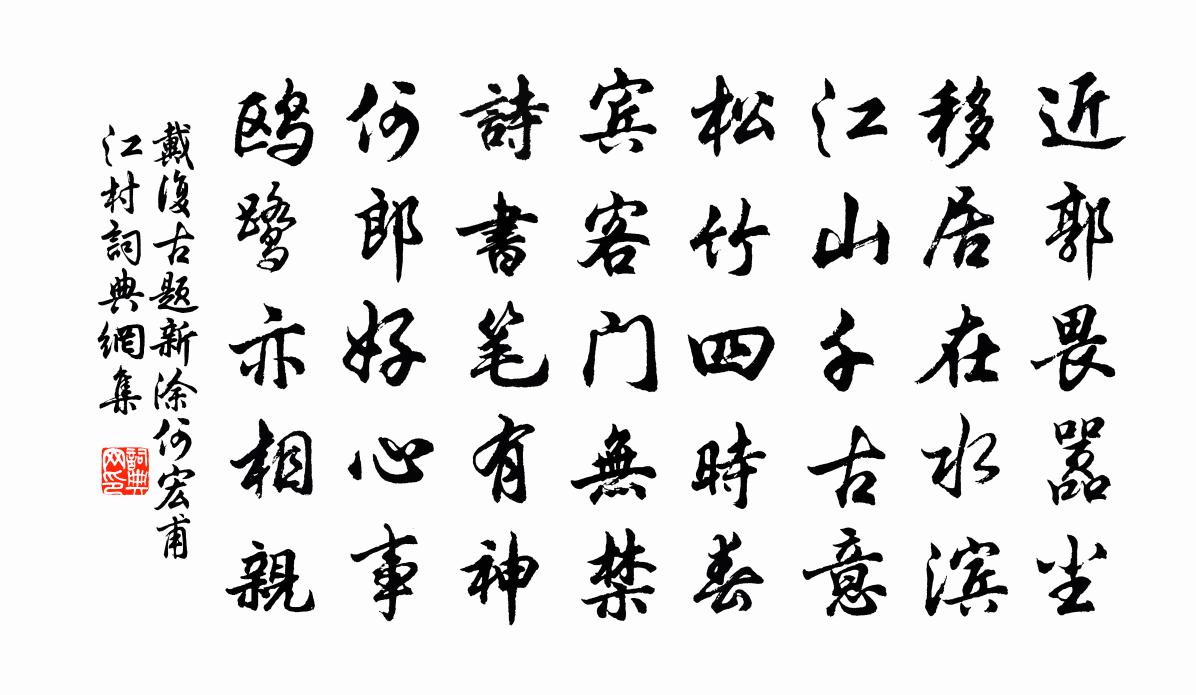 近郭畏嚣尘
移居在水滨
江山千古意
松竹四時春
宾客门無禁
詩書笔有神
何郎好心事
鸥鹭亦相親
戴復古题新涂何宏甫
江村詞典網集
詞典
网印